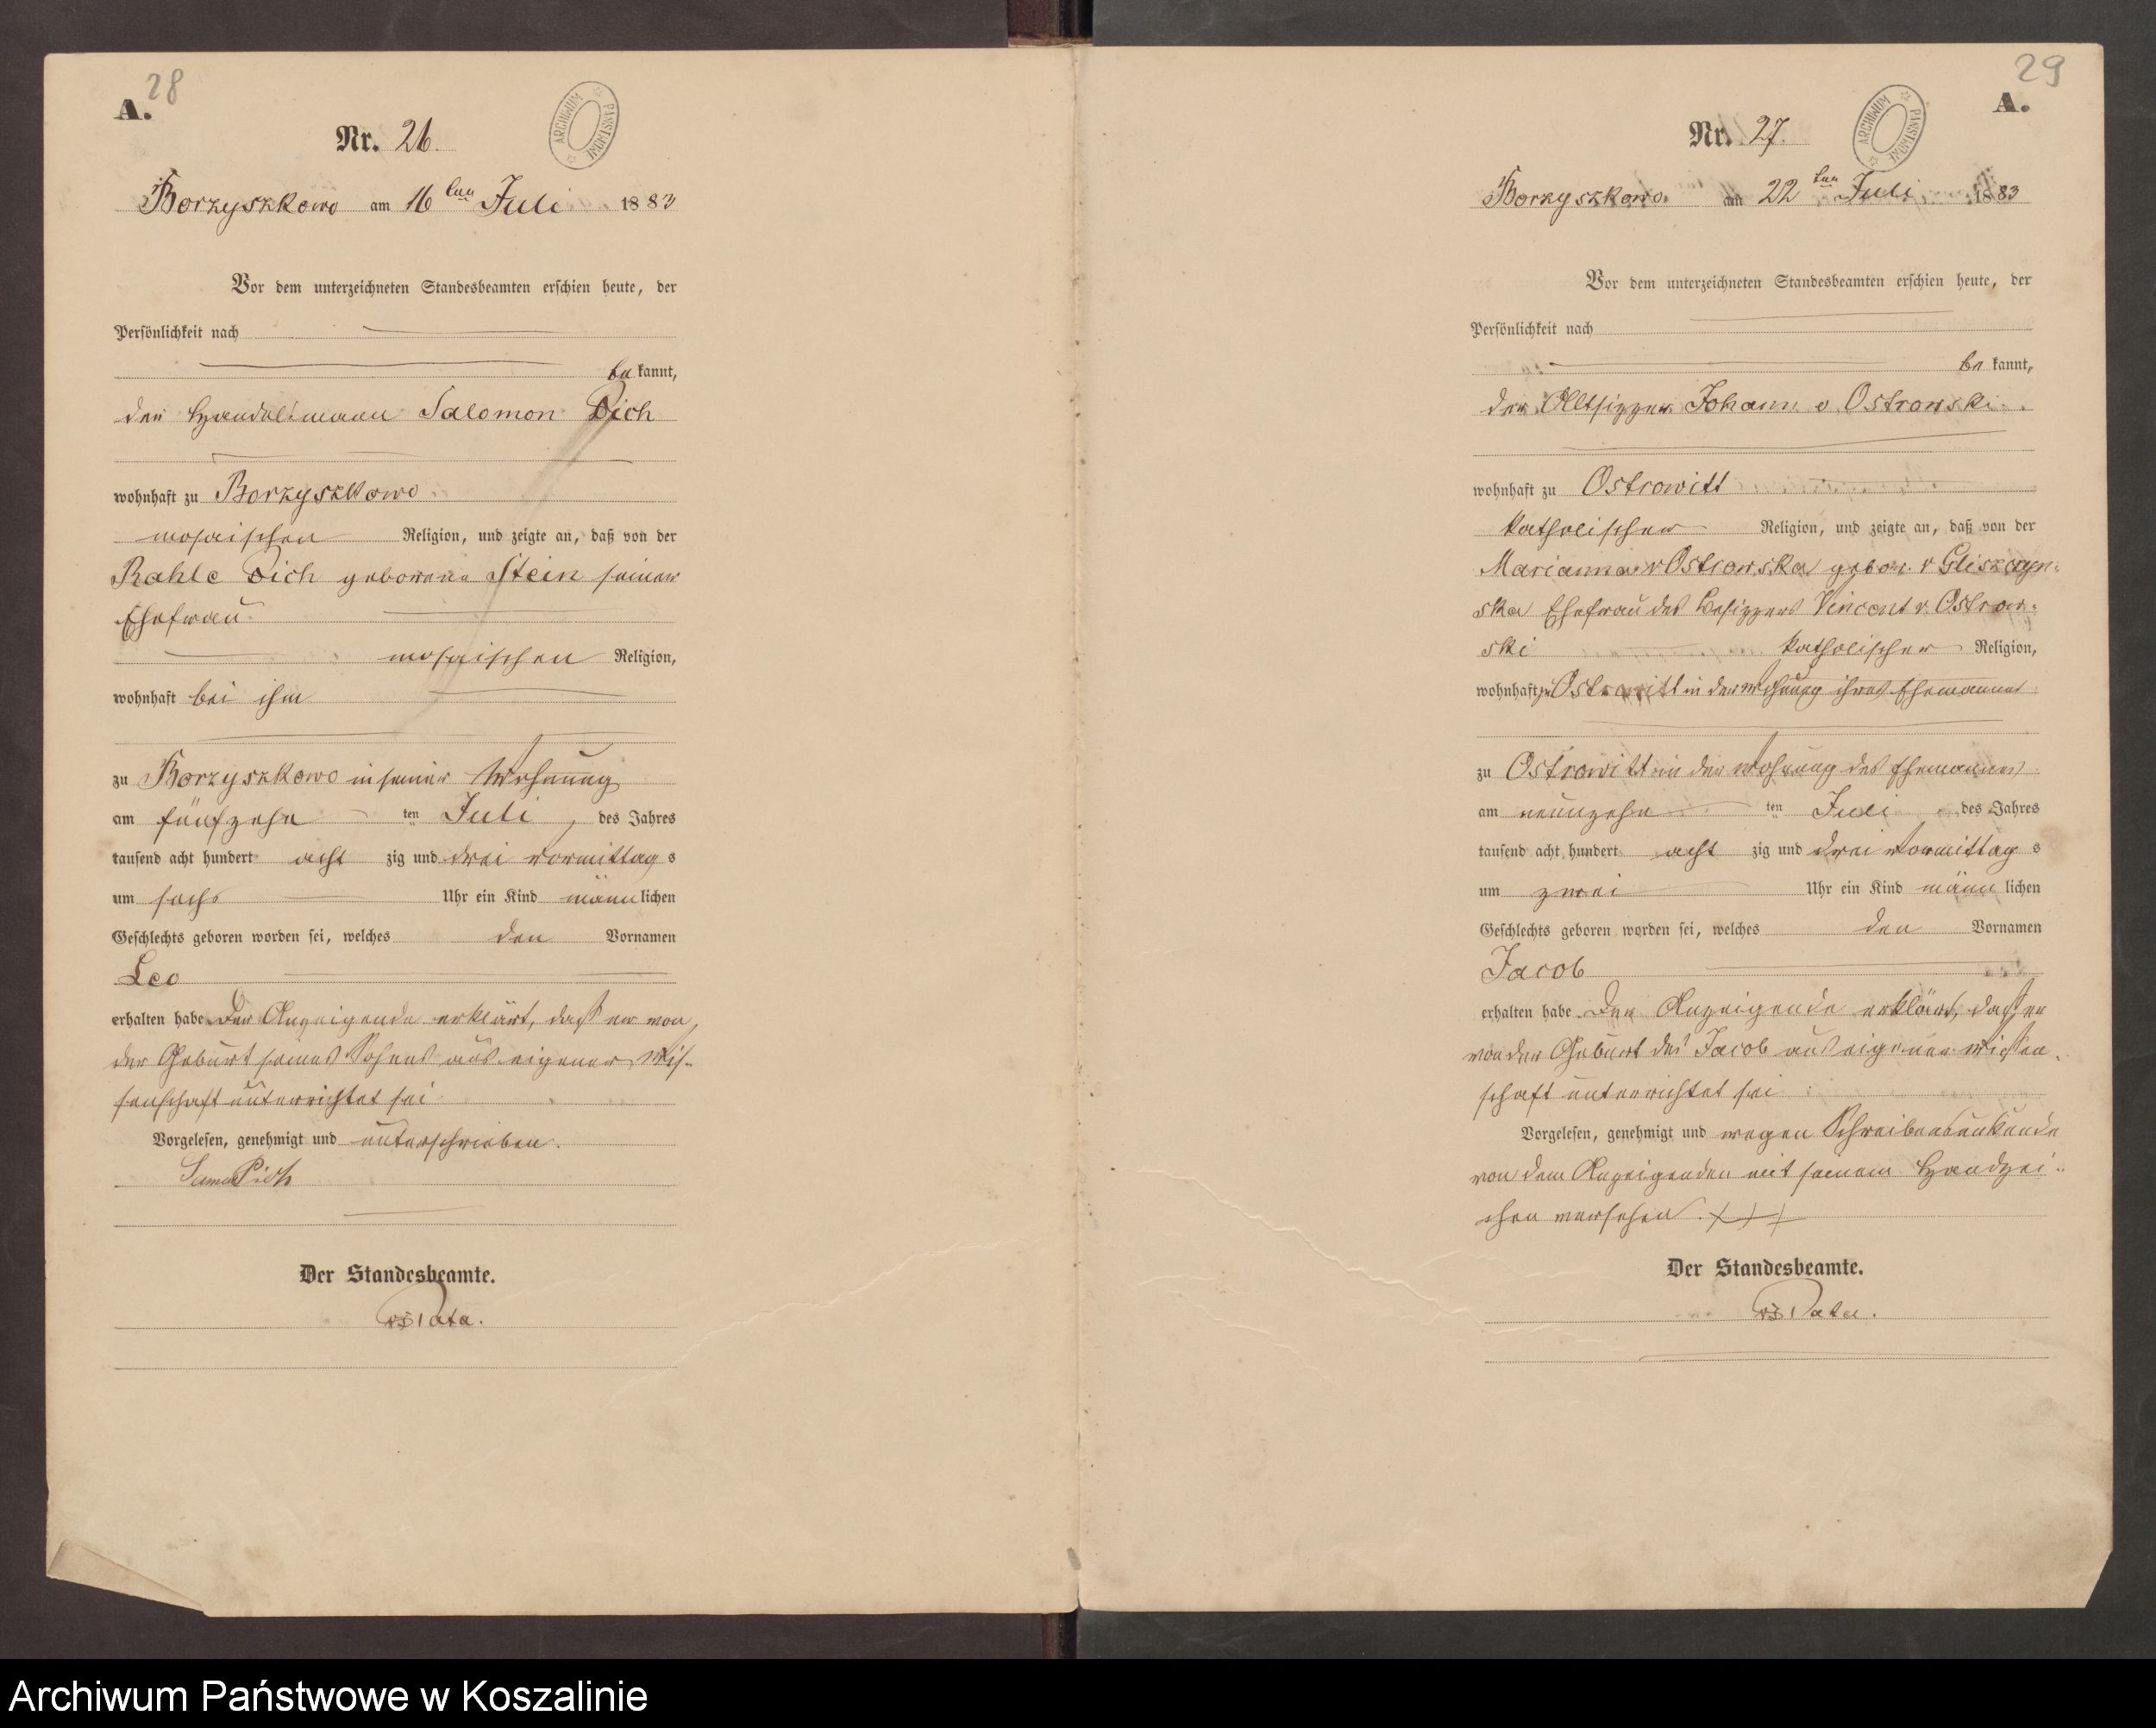 28
A.
ARCHIWUM PAŃSTWOWE
Nr. 26.
Borzyszkowo am 16ten Juli 1883
Vor dem unterzeichneten Standesbeamten erschien heute, der
Persönlichkeit nach
bekannt,
der Handelsmann Salomon Pich
wohnhaft zu Borzyszkowo
mosaischen Religion, und zeigte an, daß von der
Rahle Pich geborene Stein seiner
Ehefrau
mosaischen Religion,
wohnhaft bei ihm
zu Borzyszkowo in seiner Wohnung
am fünfzehn ten Juli, des Jahres
tausend acht hundert acht zig und drei Vormittag s
um sechs Uhr ein Kind männlichen
Geschlechts geboren worden sei, welches den Vornamen
Leo
erhalten habe. Der Anzeigende erklärt, daß er von
der Geburt seines Sohnes aus eigener Wis-
senschaft unterrichtet sei.
Vorgelesen, genehmigt und unterschrieben.
Pich
Der Standesbeamte.
Pata.
29
A.
ARCHIWUM PAŃSTWOWE
Nr. 27.
Borzyszkowo am 22ten Juli 1883
Vor dem unterzeichneten Standesbeamten erschien heute, der
Persönlichkeit nach
bekannt,
der Altsitzer Johann v Ostrowski
wohnhaft zu Ostrowitt
katholischer Religion, und zeigte an, daß von der
Marianna v Ostrowska gebor. v Gliszczyn-
ska Ehefrau des Besitzers Vincent v. Ostrow-
ski katholischer Religion,
wohnhaft zu Ostrowitt in der Wohnung ihres Ehemannes
zu Ostrowitt in der Wohnung des Ehemannes
am neunzehn ten Juli des Jahres
tausend acht hundert acht zig und drei Vormittag s
um zwei Uhr ein Kind männlichen
Geschlechts geboren worden sei, welches den Vornamen
Jacob
erhalten habe. Der Anzeigende erklärt, daß er
von der Geburt des Jacob aus eigener Wissen-
schaft unterrichtet sei.
Vorgelesen, genehmigt und wegen Schreibensunkunde
von dem Anzeigenden mit seinem Handzei-
chen versehen. XXX
Der Standesbeamte.
Pata.
Archiwum Państwowe w Koszalinie